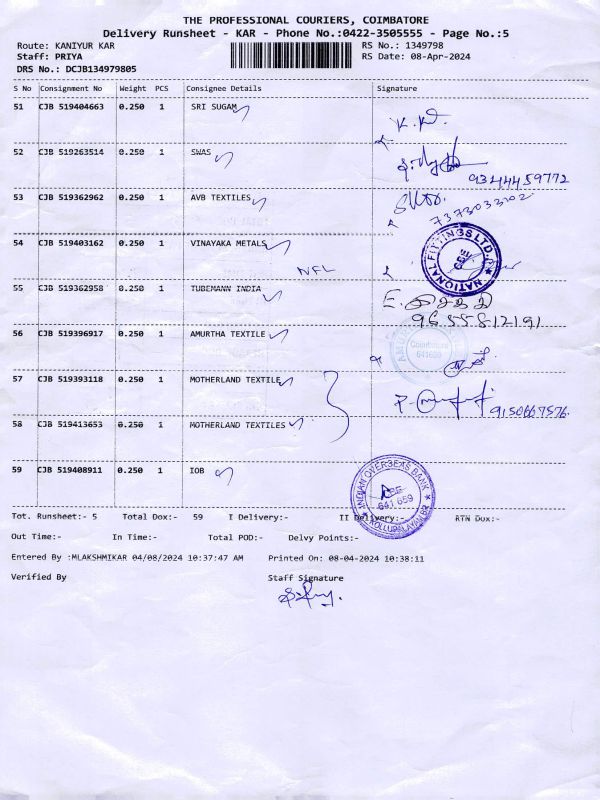 THE PROFESSIONAL COURIERS, COIMBATORE
Delivery Runsheet - KAR - Phone No.:0422-3505555 - Page No.:5
Route: KANIYUR KAR RS No.: 1349798
Staff: PRIYA RS Date: 08-Apr-2024
DRS No.: DCJB134979805
S No Consignment No Weight PCS Consignee Details Signature
51 CJB 519404663 0.250 1 SRI SUGAM
52 CJB 519263514 0.250 1 SWAS
9344459772
53 CJB 519362962 0.250 1 AVB TEXTILES
7373033202
54 CJB 519403162 0.250 1 VINAYAKA METALS
NATIONAL FITTINGS LTD.
NFL
55 CJB 519362958 0.250 1 TUBEMANN INDIA
9655812191
56 CJB 519396917 0.250 1 AMURTHA TEXTILE
Coimbatore
57 CJB 519393118 0.250 1 MOTHERLAND TEXTILE
9150667576
58 CJB 519413653 0.250 1 MOTHERLAND TEXTILES
59 CJB 519408911 0.250 1 IOB
INDIAN OVERSEAS BANK
641 659
Tot. Runsheet:- 5 Total Dox:- 59 I Delivery:- II Delivery:- RTN Dox:-
Out Time:- In Time:- Total POD:- Delvy Points:-
Entered By :MLAKSHMIKAR 04/08/2024 10:37:47 AM Printed On: 08-04-2024 10:38:11
Verified By Staff Signature